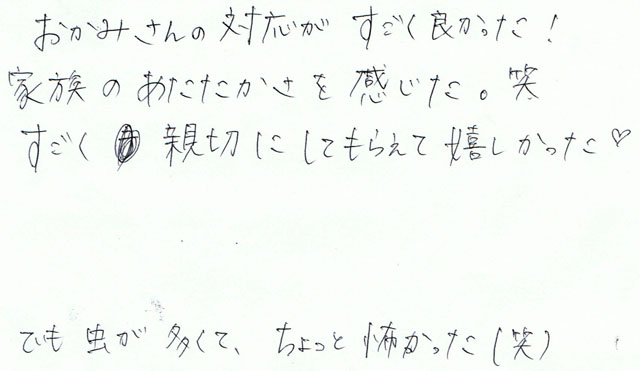 おかみさんの対応がすごく良かった！
家族のあたたかさを感じた。笑
すごく親切にしてもらえて嬉しかった♡
でも虫が多くて、ちょっと怖かった(笑)